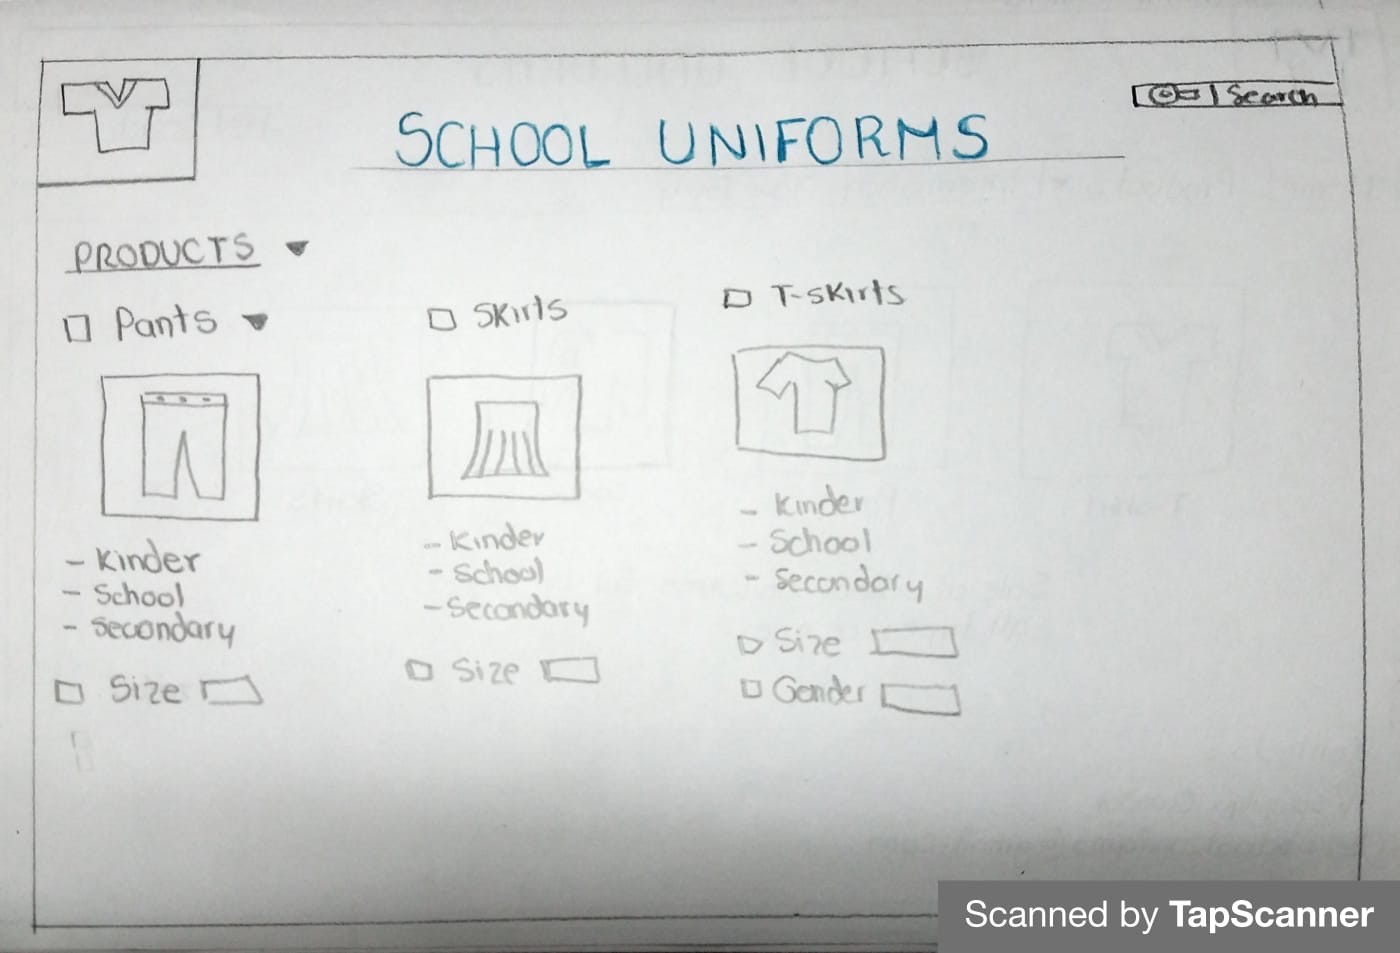 Search
SCHOOL UNIFORMS
PRODUCTS
Pants
Skirts
T-skirts
- Kinder
- School
- Secondary
Size
- Kinder
- School
- Secondary
Size
- Kinder
- School
- Secondary
Size
Gender
Scanned by TapScanner